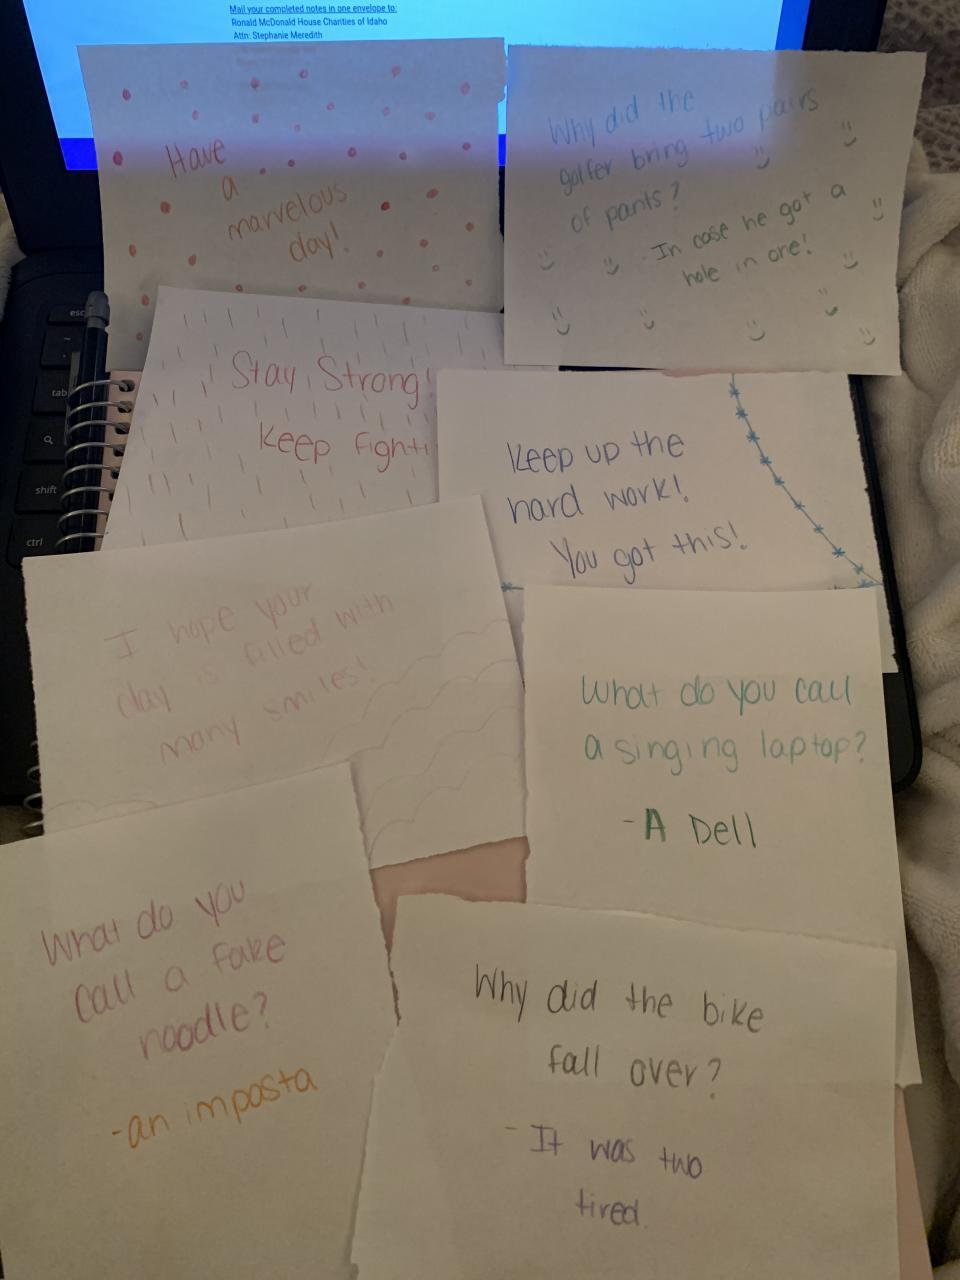 Mail your completed notes in one envelope to:
Ronald McDonald House Charities of Idaho
Attn: Stephanie Meredith
Have
a
marvelous
day!
Why did the
golfer bring two pairs
of pants?
In case he got a
hole in one!
esc
tab
shift
ctrl
Stay Strong!
Keep fighti
Keep up the
hard work!
You got this!
I hope your
day is filled with
many smiles!
What do you call
a singing laptop?
-A Dell
What do you
call a fake
noodle?
-an impasta
Why did the bike
fall over?
-It was two
tired.